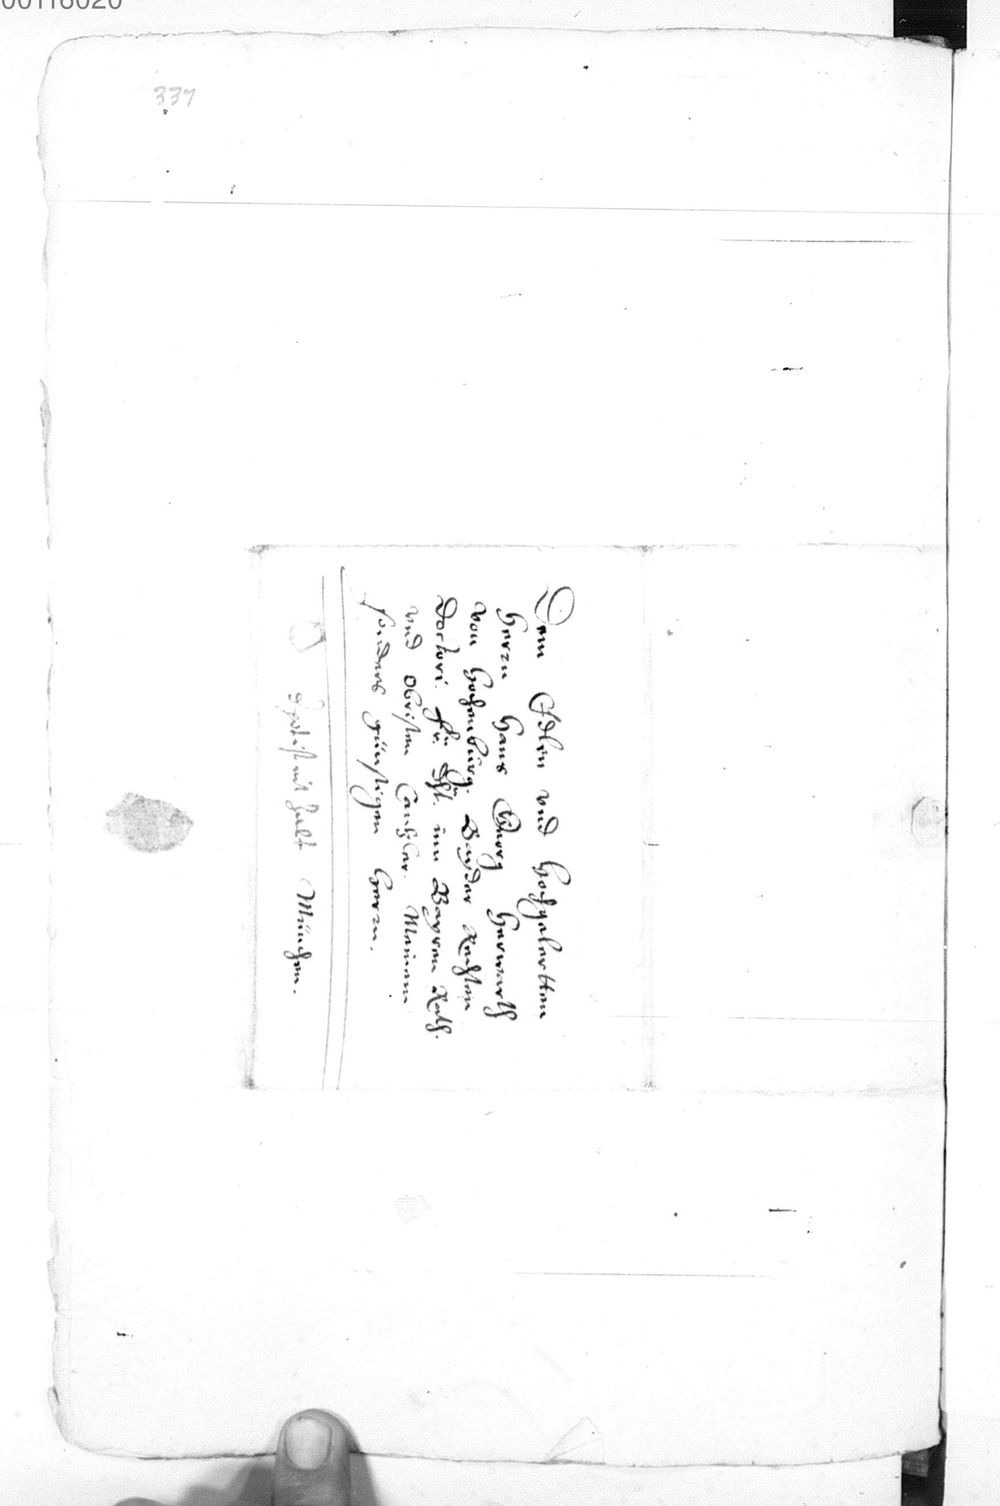 00116020
337
Dem Edlen vnd Hochgelertten
Herrn Hans Georg Herwarth
von Hohenburg. Bayder Rechten
Doctori. Fr: Dhl. inn Bayren Rath.
vnd Obristen Cantzler. Meinem
sonders günstigen Herrn.
München.